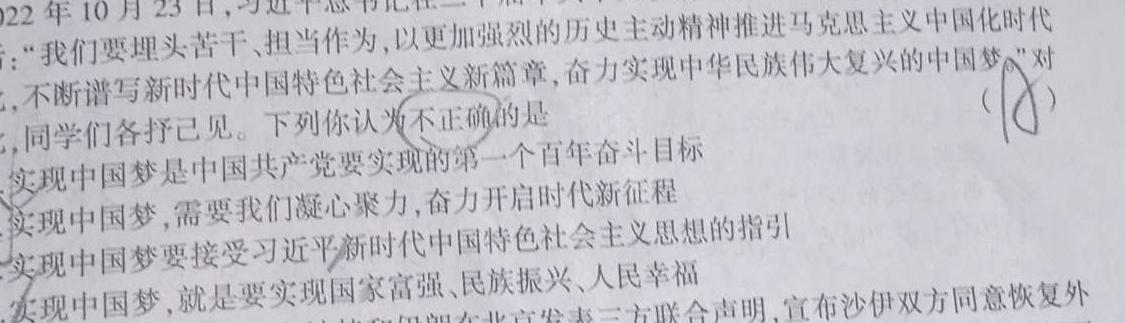 22 年 10 月 23 日,习近平总书记在二十届
:“我们要埋头苦干、担当作为,以更加强烈的历史主动精神推进马克思主义中国化时代
,不断谱写新时代中国特色社会主义新篇章,奋力实现中华民族伟大复兴的中国梦。”对
,同学们各抒己见。下列你认为不正确的是 ( )
实现中国梦是中国共产党要实现的第一个百年奋斗目标
实现中国梦,需要我们凝心聚力,奋力开启时代新征程
实现中国梦要接受习近平新时代中国特色社会主义思想的指引
实现中国梦,就是要实现国家富强、民族振兴、人民幸福
和伊朗在北京发表三方联合声明,宣布沙伊双方同意恢复外